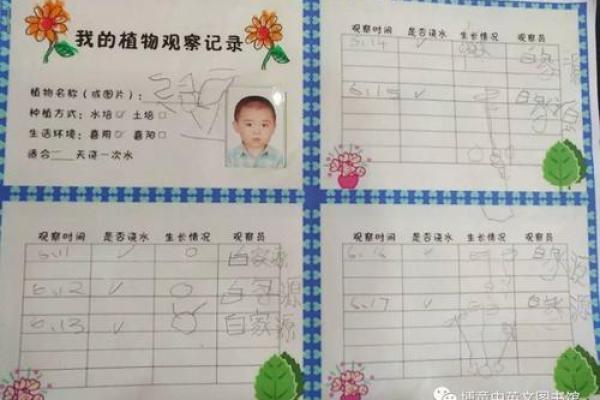 我的植物观察记录
植物名称(或图片):
种植方式:水培☑ 土培□
生活环境:喜阴☑ 喜阳□
适合 天浇一次水
观察时间 是否浇水 生长情况 观察员
6.14 ✓ 白家源
6.15 ✓ 白家源
观察时间 是否浇水 生长情况 观察员
6.11 ✓ 白家源
6.12 ✓ 白家源
6.13 ✓ 白家源
观察时间 是否浇水 生长情况 观察员
6.16 ✓ 白家源
6.17 ✓ 白家源
博童中英文图书馆